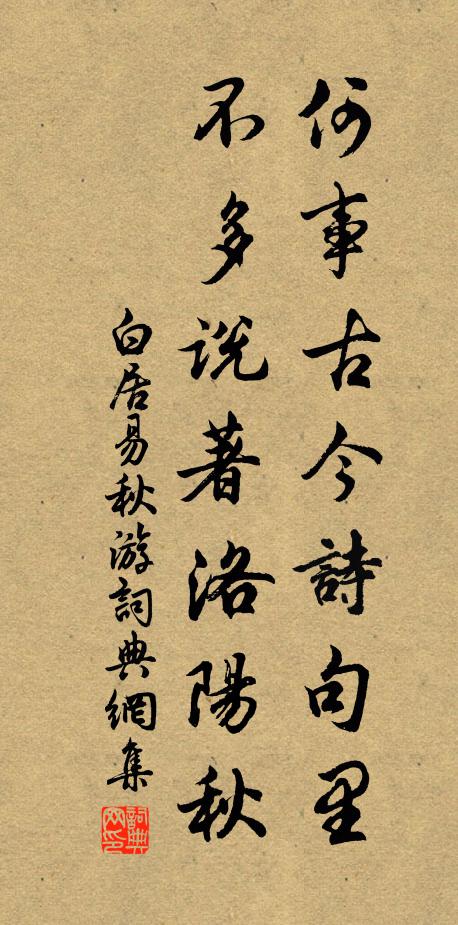 何事古今詩句里
不多説著洛陽秋
白居易秋游詞典網集
詞典網印